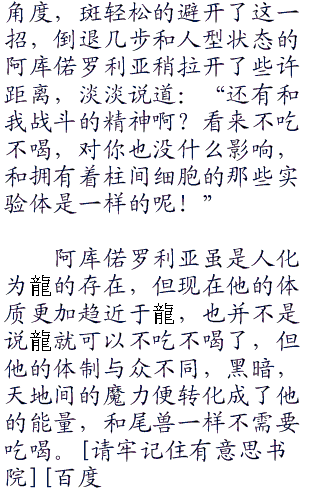 角度，斑轻松的避开了这一
招，倒退几步和人型状态的
阿库偌罗利亚稍拉开了些许
距离，淡淡说道：“还有和
我战斗的精神啊？看来不吃
不喝，对你也没什么影响，
和拥有着柱间细胞的那些实
验体是一样的呢！”
阿库偌罗利亚虽是人化
为龍的存在，但现在他的体
质更加趋近于龍，也并不是
说龍就可以不吃不喝了，但
他的体制与众不同，黑暗，
天地间的魔力便转化成了他
的能量，和尾兽一样不需要
吃喝。[请牢记住有意思书
院][百度